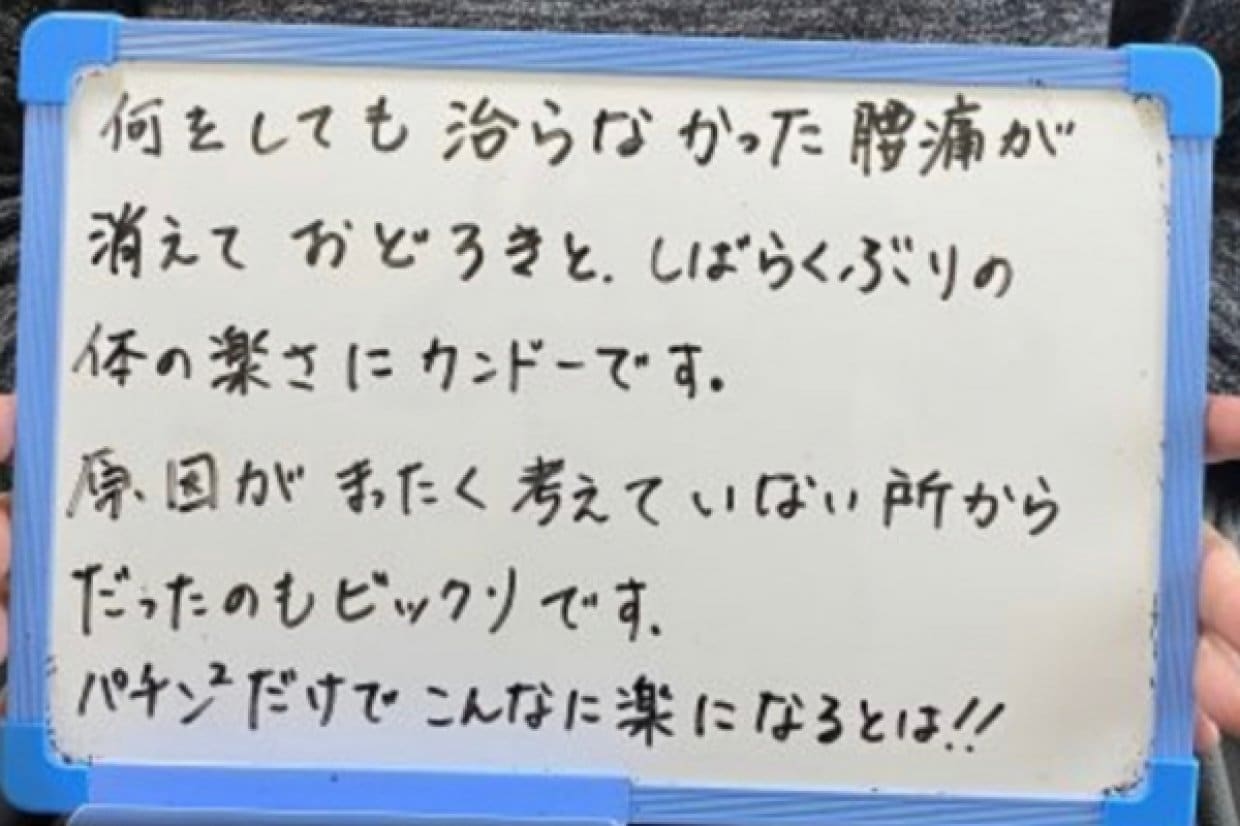 何をしても治らなかった腰痛が
消えておどろきと、しばらくぶりの
体の楽さにカンドーです。
原因がまったく考えていない所から
だったのもビックリです。
パチン²だけでこんなに楽になるとは!!